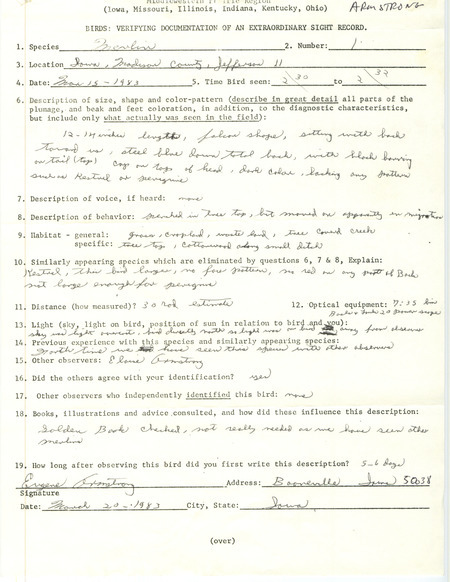 (Iowa, Missouri, Illinois, Indiana, Kentucky, Ohio) ARMSTRONG
BIRDS: VERIFYING DOCUMENTATION OF AN EXTRAORDINARY SIGHT RECORD.
1. Species Merlin 2. Number: 1
3. Location Iowa, Madison County, Jefferson 11
4. Date: Mar 15 - 1983 5. Time Bird seen: 2 30 to 2 32
6. Description of size, shape and color-pattern (describe in great detail all parts of the
plumage, and beak and feet coloration, in addition, to the diagnostic characteristics,
but include only what actually was seen in the field):
12-14 inches length, falcon shape, sitting with back
toward us, steel blue down total back, with black
on tail (top) cap on top of head, dark color, lacking any pattern
such as Kestrel or peregrine
7. Description of voice, if heard: none
8. Description of behavior: perched in tree top, but moved on apparently in migration
9. Habitat - general: grass, cropland, waste land, tree creek
specific: tree top, cottonwood along small ditch
10. Similarly appearing species which are eliminated by questions 6, 7 & 8, Explain:
Kestrel, this bird larger, no face pattern, no red on any part of Back
not large enough for peregrine
11. Distance (how measured)? 30 rod estimate 12. Optical equipment: 7:35
13. Light (sky, light on bird, position of sun in relation to bird and you):
14. Previous experience with this species and similarly appearing species:
time we have seen this species with other observers
15. Other observers: Eloise Armstrong
16. Did the others agree with your identification? yes
17. Other observers who independently identified this bird: none
18. Books, illustrations and advice consulted, and how did these influence this description:
Golden Book checked, not really needed as we have seen other
merlin
19. How long after observing this bird did you first write this description? 5-6 days
Eugene Armstrong Address: Booneville Iowa 50038
Signature
Date: March 20 - 1983 City, State: Iowa
(over)